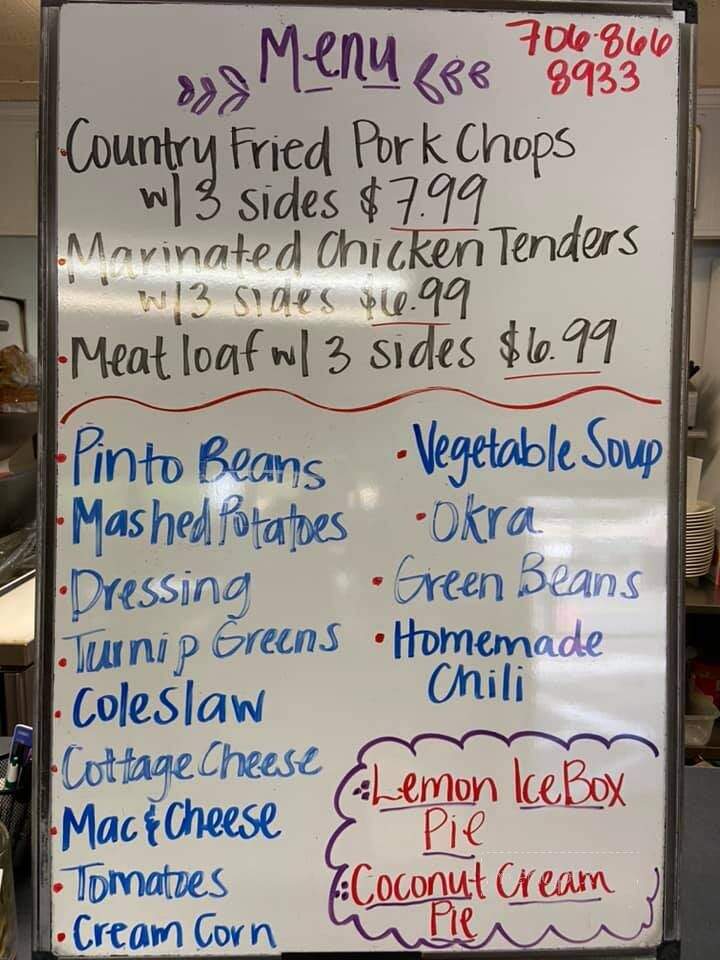 Menu
706-866
8933
Country Fried Pork Chops
w/ 3 sides $7.99
Marinated Chicken Tenders
w/3 sides $6.99
Meatloaf w/ 3 sides $6.99
Pinto Beans
Mashed Potatoes
Dressing
Turnip Greens
Coleslaw
Cottage Cheese
Mac & Cheese
Tomatoes
Cream Corn
Vegetable Soup
Okra
Green Beans
Homemade
Chili
Lemon Ice Box
Pie
Coconut Cream
Pie